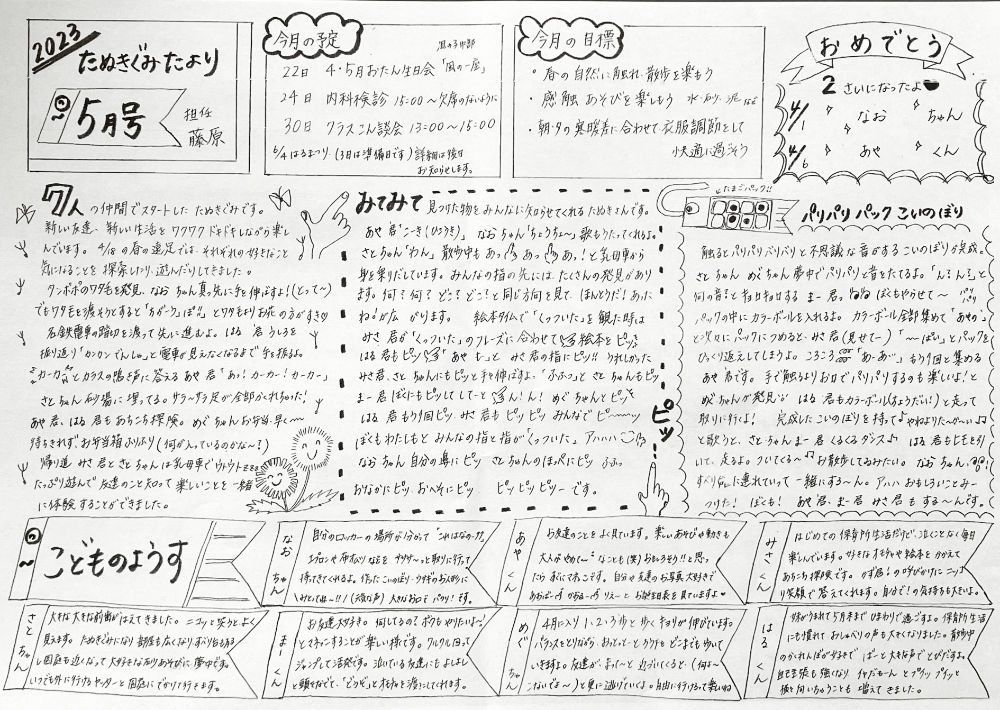 2023
たぬきぐみたより
5月号
担任
藤原
今月の予定
22日 4・5月おたん生日会「風の一座」
24日 内科検診 15:00〜欠席のないように
30日 クラスこん談会 13:00〜15:00
6/4 はるまつり(3日は準備日です)詳細は後日
お知らせします。
今月の目標
・春の自然に触れ散歩を楽もう
・感触あそびを楽しもう 水・のり・泥など
・朝・夕の寒暖差に合わせて衣服調節をして
快適に過ごそう
おめでとう
2さいになったよ
4/1 なお ちゃん
4/6 あや くん
7人の仲間でスタートしたたぬきぐみです。
新しい友達、新しい生活をワクワクドキドキしながら楽し
んでいます。4/28の春の遠足では、それぞれの好きなこと
気になることを探索したり、遊んだりしてきました。
タンポポのワタ毛を発見、なお ちゃん真っ先に手を伸ばすよ!(とって〜)
でもワタ毛を渡そうとすると
名鉄電車の踏切を渡って先に進むよ。はる 君うしろを
振り返り「カンカンでんしゃ」と電車が見えなくなるまで手を振るよ。
カーカーとカラスの鳴き声に答えるあや 君「あっ!カーカー!カーカー」
さと ちゃん砂場に埋ってる。サラ〜サラ足が全部かくれちゃった!
あや 君、はる 君もあちこち探険。めぐ ちゃんお弁当早く〜
待ちきれずお弁当箱ふりふり(何が入っているのかな〜?)
帰り道 みさ 君とさと ちゃんは乳母車でウトウト
たっぷり遊んで友達のこと知って楽しいことを一緒
に体験することができました。
みてみて 見つけた物をみんなに知らせてくれるたぬきさんです。
あや 君「こーき(ひこうき)」なお ちゃん「ちょうちょ〜」歌もうたってくれるよ。
さと ちゃん「わん」散歩中もあっあっあっ!と乳母車から
身を乗りだしています。みんなの指の先には、たくさんの発見があり
ます。何?何?どこ?どこ?と同じ方向を見て、ほんとうだ!あった
ね!が広がります。 絵本タイムで「くっついた」を観た時は
みさ 君が「くっついた」のフレーズに合わせて絵本をピッ
はる 君もピッ あや じーっとみさ 君の指にピッ!!うれしかった
みさ 君、さと ちゃんにもピッと手を伸ばすよ。「ふふっ」とさと ちゃんもピッ
まー 君ぼくにもピッしてしてーとうん!ん!めぐ ちゃんとピッ
はる 君もう1回ピッ、みさ 君もピッピッみんなでピーーッ
ぼくもわたしもとみんなの指と指が「くっついた」アハハ
なお ちゃん自分の鼻にピッ さと ちゃんのほっぺにピッ ふふっ
おなかにピッ、おへそにピッ ピッピッピッーです。
ピッ
たまごパック!!
パリパリパックこいのぼり
触るとパリパリバリバリと不思議な音がするこいのぼりが完成。
さと ちゃんめぐ ちゃん夢中でパリパリと音をたてるよ。「ん!ん!」と
何の音?とキョロキョロするまー 君。ぼくもやらせて〜
パックの中にカラーボールを入れるよ。カラーボール全部集めて「あやの」
と次々にパックにつめるとみさ 君(見せて〜)「〜ぱい」とパックを
ひっくり返えしてしまうよ。ころころ「あ・あ〜」もう1回と集める
あや 君です。手で触るよりお口でパリパリするのも楽しいよ!と
めぐ ちゃんが発見 はる 君もカラーボール(ちょうだい!)と走って
取りに行くよ! 完成したこいのぼりを持ってやねよりた〜か〜い
と歌うと、さと ちゃんまー 君くるくるダンス はる 君もヒモをひ
いて、走るよ。ついてくる〜お散歩してるみたい。なお ちゃん、
すべり台に連れていって一緒にする〜ん。アハハおもしろいことみー
つけた! ぼくも! あや 君、まー君みさ 君もする〜んです。
こどものようす
なお ちゃん
自分のロッカーの場所が分かって「これはなの〜?」
エプロンや布おむつなどをササササ〜っと取りに行って
持ってきてくれるよ。作ったこいのぼり・ウサギのお人形に
〜!!(元気な声)大きなお口でパクリ!です。
あや くん
お友達のことをよく見ています。楽しいあそびや動きも
大人がやめて〜なことも(笑)おもしろそう!!と思っ
たらまねっこです。自分の友達のお写真大好きで
とお誕生日表を見ていますよ
みさ くん
はじめての保育所生活だけど、泣くことなく毎日
楽しんでいます。好きなオモチャや絵本をかかえて
あちこち探険です。みさ 君!の呼びかけにニコッ
り笑顔で答えてくれます。自分で!の気持ちも大きいよ。
さと ちゃん
大きな大きな前歯がはえてきました。ニコッと笑うとよく
見えます。たぬきぐみになり部屋も広くなり
し園庭も近くなって大好きな石ありあそびに夢中です。
いつでも外に行けるヤッターと園庭にでかけて行きます。
まー くん
お友達大好き。何してるの?ボクもやりたいよ〜
とマネッコすることが楽しい様です。クルクル回って
ジャンプして活発です。泣いている友達にもよしよし
と頭をなでて、「どうぞ」とオモチャを渡してくれます。
めぐ ちゃん
4月に入り1・2・3歩と歩くキョリが伸びています。
バランスをとりながら、おっとっと〜とうたをどこまでも歩いて
いきますよ。友達が、まって〜と近づいてくると、(何よ〜
こないでよ〜)と更に逃げていくよ。自由に行けるって楽しいね
はる くん
姉がうまれて5月末までほわかりで過ごすよ。保育所生活
にも慣れておしゃべりの声も大きくなりました。散歩中
のかくれんぼが好きで ばーと大きな声でとびだすよ。
自己主張も強くなり イヤだもーんとプリップリッと
横を向いちゃうことも増えてきました。